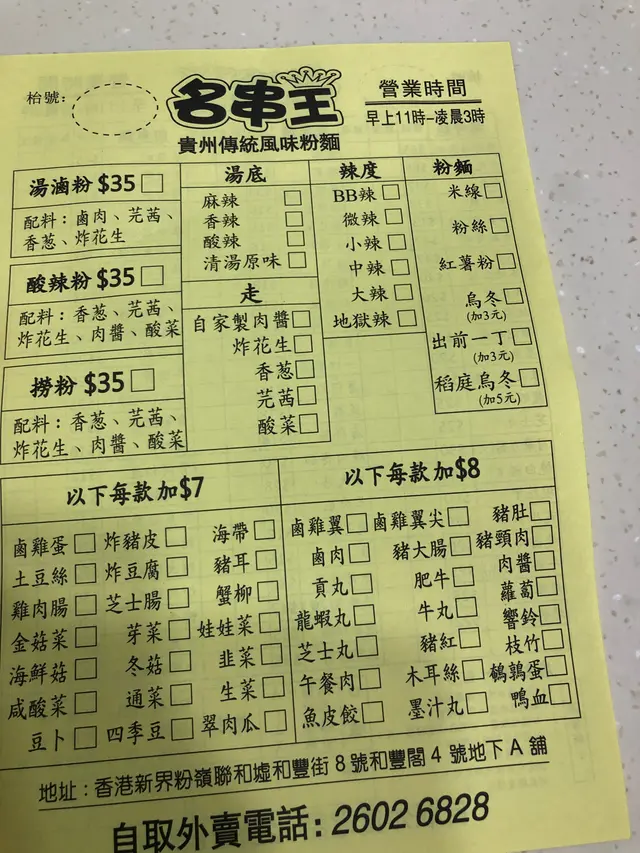 枱號：
名串王
貴州傳統風味粉麵
營業時間
早上11時-凌晨3時
湯滷粉 $35
配料：鹵肉、芫茜、
香葱、炸花生
酸辣粉 $35
配料：香葱、芫茜、
炸花生、肉醬、酸菜
撈粉 $35
配料：香葱、芫茜、
炸花生、肉醬、酸菜
湯底
麻辣
香辣
酸辣
清湯原味
走
自家製肉醬
炸花生
香葱
芫茜
酸菜
辣度
BB辣
微辣
小辣
中辣
大辣
地獄辣
粉麵
米線
粉絲
紅薯粉
烏冬
(加3元)
出前一丁
(加3元)
稻庭烏冬
(加5元)
以下每款加$7
鹵雞蛋 炸豬皮 海帶
土豆絲 炸豆腐 豬耳
雞肉腸 芝士腸 蟹柳
金菇菜 芽菜 娃娃菜
海鮮菇 冬菇 韭菜
咸酸菜 通菜 生菜
豆卜 四季豆 翠肉瓜
以下每款加$8
鹵雞翼 鹵雞翼尖 豬肚
鹵肉 豬大腸 豬頸肉
貢丸 肥牛 肉醬
龍蝦丸 牛丸 蘿蔔
芝士丸 豬紅 響鈴
午餐肉 木耳絲 枝竹
魚皮餃 墨汁丸 鵪鶉蛋
鴨血
地址：香港新界粉嶺聯和墟和豐街 8 號和豐閣 4 號地下 A 舖
自取外賣電話：2602 6828